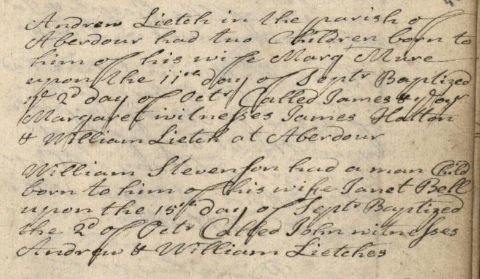 Andrew Lietch in the parish of
Aberdour had two Children born to
him of his wife Marg^t Mure
upon the 11^th day of Sept^r Baptized
y^e 2^d day of Oct^r Called James &
Margaret witnesses James Hatton
& William Lietch at Aberdour
William Stevenson had a man Child
born to him of his wife Janet Bell
upon the 15^th day of Sept^r Baptized
the 2^d of Oct^r Called John witnesses
Andrew & William Lietches